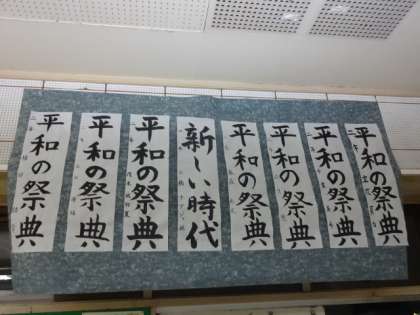 平和の祭典
平和の祭典
平和の祭典
平和の祭典
新しい時代
平和の祭典
平和の祭典
平和の祭典